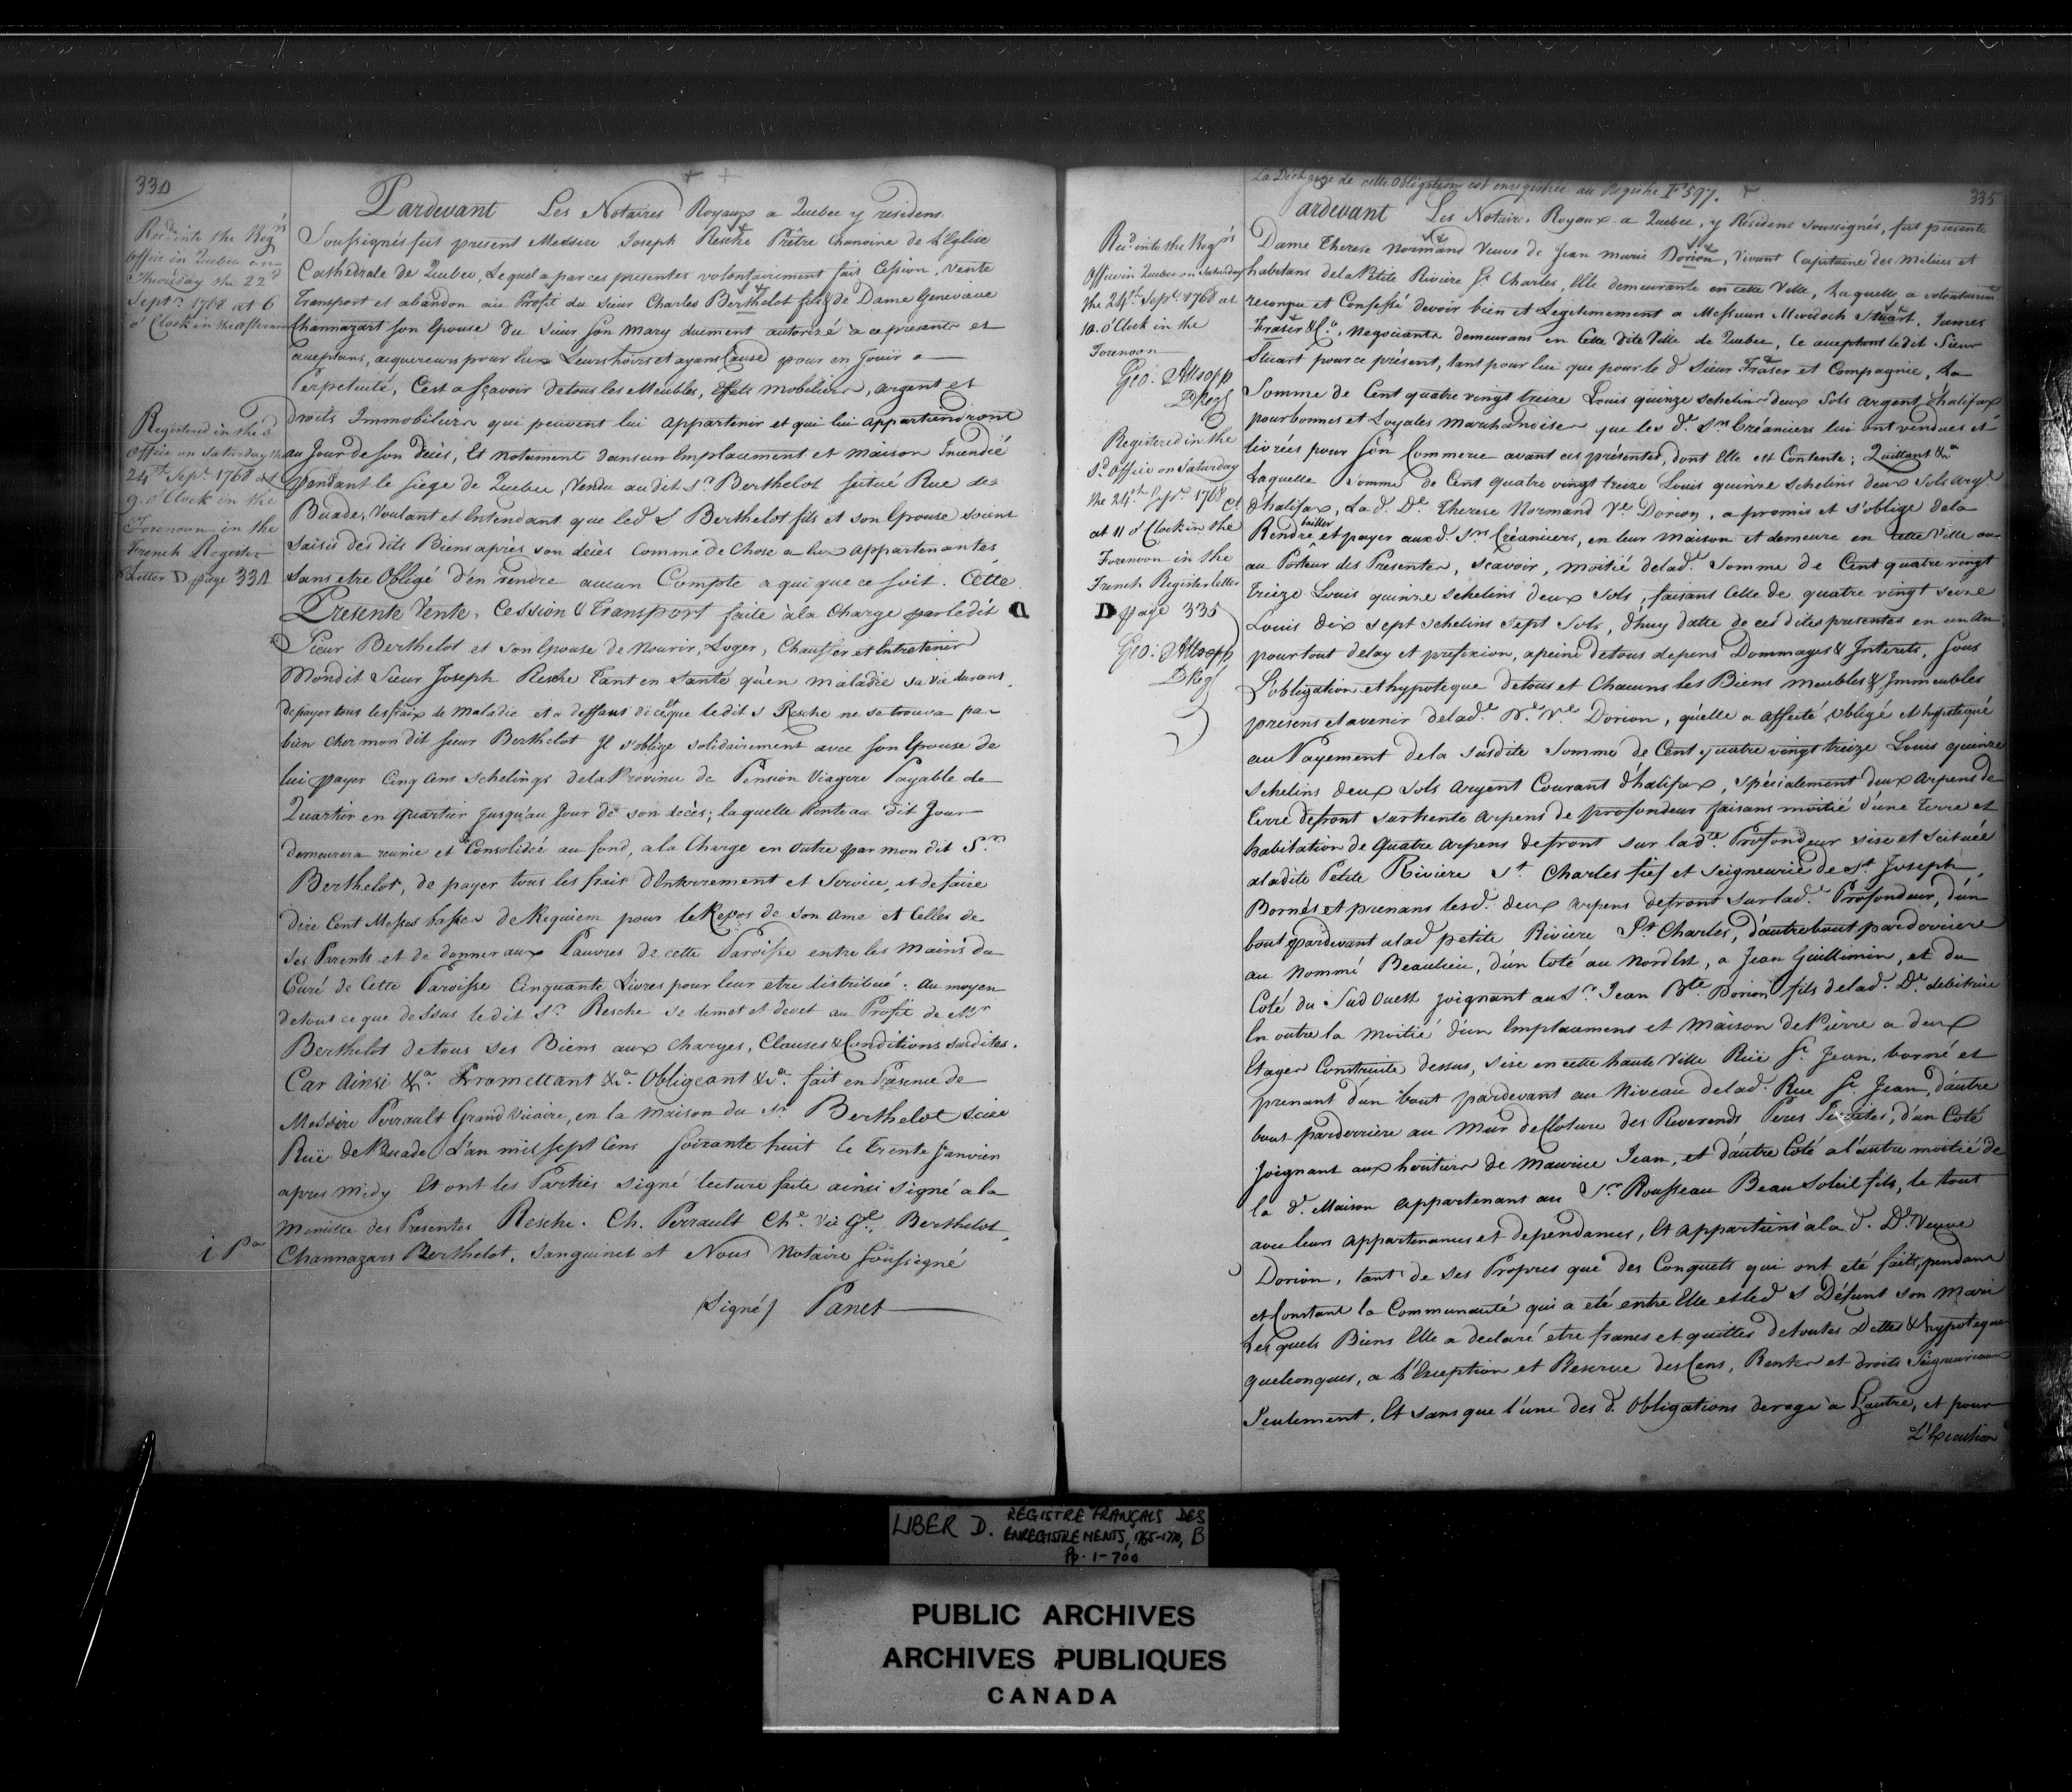 334
Recd into the Regrs
Office in Quebec on
Thursday the 22d
Septr 1768 at 6
o'Clock in the afternoon
Registered in the sd
Office on Saturday the
24th Sepr 1768 at
9 o'Clock in the
Forenoon in the
French Register
Letter D page 334
Pardevant Les Notaires Royaux a Quebec y residens
Soussignés fut present Messire Joseph Resche Prêtre Chanoine de L'Eglise
Cathedrale de Quebec, Lequel a par ces presentes volontairement fait Cession, vente
Transport et abandon au Profit du Sieur Charles Berthelot fils & de Dame Genevieve
Channazart son Epouse du Sieur son Mary duement autorizé a ce presents et
acceptans, acquereurs pour eux Leurs hoirs et ayans Cause pour en Jouir a
Perpetuité, C'est a sçavoir de tous les Meubles, Effets mobiliers, argent et
droits Immobiliers qui peuvent lui appartenir et qui lui appartiendront
au Jour de son décès, Et notament dans un Emplacement et maison Incendié
pendant le siege de Quebec, Vendu au dit Sr Berthelot situé Rue de
Buade, Voulant et Entendant que led S Berthelot fils et son Epouse soient
saisis des dits Biens après son décès comme de Chose a eux appartenantes
sans etre Obligé d'en rendre aucun Compte a qui que ce soit. Cette
Presente Vente, Cession & Transport faite à la Charge par le dit
Sieur Berthelot et son Epouse de Nourir, Loger, Chauffer et Entretenir
Mondit Sieur Joseph Resche Tant en santé qu'en maladie sa vie durant
de payer tous les fraix de maladie et a deffaut de ce et que le dit S Resche ne se trouva pas
bien chez mon dit sieur Berthelot Il s'oblige solidairement avec son Epouse de
lui payer Cinq Cens schelings de la Province de Pension Viagere Payable de
Quartier en quartier Jusqu'au Jour de son decès; laquelle Rente au dit Jour
demeurera reunie et Consolidée au fond, a la Charge en outre par mon dit Sr
Berthelot, de payer tous les frais d'Enterrement et Service, et de faire
dire Cent Messes basses de Requiem pour le Repos de son ame et Celles de
ses Parents et de donner aux Pauvres de cette Paroisse entre les mains du
Curé de Cette Paroisse Cinquante Livres pour leur etre distribué: au moyen
de tout ce que dessus le dit Sr Resche se demet et devet au Profit de Mr
Berthelot de tous ses Biens aux Charges, Clauses & Conditions susdites.
Car Ainsi &a. Promettant &a. Obligeant &a. fait en Presence de
Messire Perrault Grand Vicaire, en la maison du Sr Berthelot scize
Ruë de Buade L'an mil sept Cens Soixante huit le Trente Janvier
apres midy Et ont les Parties signé lecture faite ainsi signé a la
Minutte des Presentes Resche. Ch. Perrault Che. Vic Gl. Berthelot,
Channazart Berthelot, Sanguinet et Nous Notaire Soussigné
(Signé) Panet
La Décharge de cette Obligation est enregistrée au Registre F 597.
335
Recd into the Regrs
Office in Quebec on Saturday
the 24th Sepr 1768 at
10. o'Clock in the
Forenoon
Geo: Allsopp
D Reg
Registered in the
sd Office on Saturday
the 24th Sepr 1768
at 11 o'Clock in the
Forenoon in the
French Register Letter
D page 335
Geo: Allsopp
D Reg
Pardevant Les Notaires Royaux a Quebec, y Residens soussignés, fut presente
Dame Therese Normand Veuve de Jean Marie Dorion, Vivant Capitaine des Milices et
habitans de la Petite Riviere St Charles, Elle demeurante en cette Ville, Laquelle a volontairemt
reconnu et Confessé devoir bien et Legitimement a Messieurs Murdoch Stuart, James
Fraser & Ce. Negociants demeurans en Cette dite Ville de Quebec, le acceptant ledit Sieur
Stuart pour ce présent, tant pour lui que pour le d Sieur Fraser et Compagnie, La
Somme de Cent quatre vingt treize Louis quinze schelins deux sols argent d'halifax
pour bonnes et Loyales Marchandises que les d. Srs Créanciers lui ont vendues et
livrées pour Son Commerce avant ces présentes, dont Elle est Contente; Quittant &a
Laquelle somme de Cent quatre vingt treize Louis quinze schelins deux sols argt
d'halifax, La d. De Therese Normand Ve Dorion, a promis et s'oblige de la
Rendre bailler et payer aux d. Srs Créanciers, en leur maison et demeure en cette Ville ou
au Porteur des Presentes, sçavoir, moitié de lad. Somme de Cent quatre vingt
Treize Louis quinze schelins deux sols, faisant Celle de quatre vingt seize
Louis dix sept schelins sept sols, d'huy datte de ces dites presentes en un An
pour tout delay et prefixion, a peine de tous depens Dommages & Interets, Sous
L'obligation et hypoteque de tous et Chacuns les Biens meubles & Immeubles
presens et avenir de lad. De. Ve. Dorion, qu'elle a affecté obligé et hypotequé
au Payement de la susdite Somme de Cent quatre vingt treize Louis quinze
schelins deux sols argent Courant d'halifax, spécialement deux arpens de
terre de front sur trente arpens de profondeur faisans moitié d'une terre et
habitation de quatre arpens de front sur lad. Profondeur sise et scituée
a ladite Petite Riviere St. Charles fief et seigneurie de St Joseph,
Bornés et prenans lesd. deux arpens de front sur lad. Profondeur, d'un
bout pardevant a lad petite Riviere St Charles, d'autre bout par derriere
au Nommé Beaulieu, d'un Coté au Nord Est, a Jean Guillimin, et du
Coté du Sud Ouest joignant au Sr Jean Bte Dorion fils de lad. De. debitrice
En outre la moitié d'un Emplacement et maison de Pierre a deux
Etages Construite dessus, sise en cette haute Ville Ruë St Jean, borné et
prenant d'un bout pardevant au Niveau de lad. Rue St Jean, d'autre
bout par derrière au Mur de Cloture des Reverends Peres Jesuites, d'un Coté
Joignant aux heritiers de Maurice Jean, et d'autre Coté a l'autre moitié de
la d. Maison appartenant au Sr Rousseau Beausoleil fils, le tout
avec leurs appartenances et dependances, Et appartient à la d. De. Veuve
Dorion, tant de ses Propres que des Conquets qui ont eté faits pendant
et Constant la Communauté qui a eté entre Elle et led S Défunt son Mari
Les quels Biens Elle a declaré etre francs et quittes de toutes Dettes & hypoteques
quelconques, a L'Exception et Reserve des Cens, Rentes et droits Seigneuriaux
Seulement, Et sans que l'une des d. Obligations deroge à L'autre, et pour
L'Execution
LIBER D. REGISTRE FRANÇAIS DES
ENREGISTREMENTS, 1765-1770, B
Pp. 1-700
PUBLIC ARCHIVES
ARCHIVES PUBLIQUES
CANADA